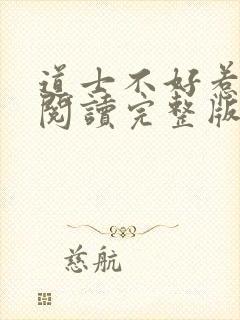 道士不好惹
閱讀完整版
慈航